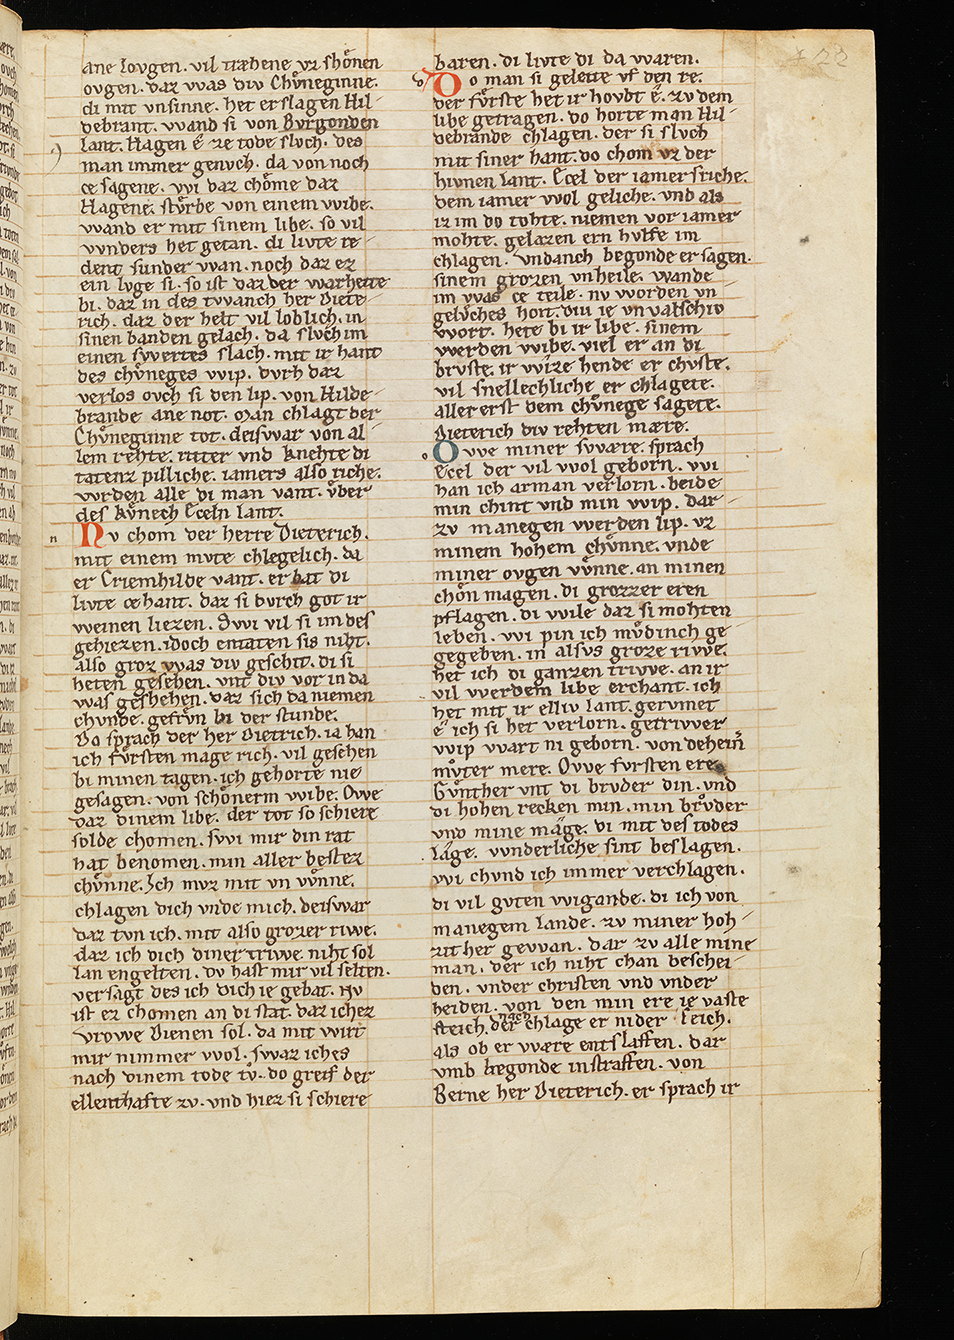 ane lovgen. vil trærbene vz shonen
ovgen. daz vvas div Chv̊neginne.
di mit vnsinne. het erslagen Hil-
debrant. vvand si von Bvrgonden
lant. Hagen é ze tode slvch. des
man immer genvch. da von noch
ce sagene. vvi daz chǒme daz
Hagene. stv̊rbe von einem vvibe.
vvand er mit sinem libe. so vil
vvnders het getan. di livte re-
dent sunder vvan. noch daz ez
ein lvge si. so ist daz der warheite
bi. daz in des tvvanch her Diete-
rich. daz der helt vil loblich. in
sinen banden gelach. da slvch im
einen svvertes slach. mit ir hant
des chv̊neges vvip. dvrh daz
verlos ovch si den lip. von Hilde-
brande ane not. man chlagt der
Chv̊neginne tot. deisvvar von al-
lem rehte. ritter vnd knehte di
tatenz pilliche. iamers also riche.
vvrden alle di man vant. v̊ber
des kv̊nech Eceln lant.
Nv chom der herre Dieterich.
mit einem mvte chlegelich. da
er Criemhilde vant. er bat di
livte cehant. daz si dvrch got ir
vveinen liezen. Svvi vil si im des
gehiezen. idoch entaten sis niht.
also groz vvas div geschit. di si
heten gesehen. vnt div vor in da
vvas geshehen. daz sich da niemen
chvnde. gefrv̊n bi der stunde.
Do sprach der her Dietrich. ia han
ich fv̊rsten mage rich. vil gesehen
bi minen tagen. ich gehorte nie
gesagen. von schǒnerm vvibe. Ovve
daz dinem libe. der tot so schiere
solde chomen. svvi mir din rat
hat benomen. min aller bestez
chv̊nne. Ich mvz mit vn vv̊nne.
chlagen dich vnde mich. deisvvar
daz tvn ich. mit also grozer rivve.
daz ich dich diner trivve. niht sol
lan engelten. dv hast mir vil selten.
versagt des ich dich ie gebat. Nv
ist ez chomen an di stat. daz ichez
vrovve dienen sol. da mit vvirt
mir nimmer vvol. svvaz iches
nach dinem tode tv̊. do greif der
ellenthafte zv. vnd hiez si schiere
baren. di livte di da vvaren.
Do man si geleite vf den re.
der fv̊rste het ir hovbt é. zv dem
libe getragen. do horte man Hil-
debrande chlagen. der si slvch
mit siner hant. do chom vz der
hivnen lant. Ecel der iamersriche.
dem iamer vvol geliche. vnd als
iz im do tohte. niemen vor iamer
mohte. gelazen ern hvlfe im
chlagen. vndanch begonde er sagen.
sinem grozen vnheile. vvande
im vvas ce teile. nv vvorden vn
gelv̊ches hort. div ie vn valschiv
vvort. hete bi ir libe. sinem
vverden vvibe. viel er an di
brvste. ir vvize hende er chvste.
vil snellechliche er chlagete.
aller erst dem chv̊nege sagete.
Dieterich div rehten mære.
Ovve miner svvære. sprach
Ecel der vil vvol geborn. vvi
han ich arman verlorn. beide
min chint vnd min vvip. dar-
zv manegen vverden lip. vz
minem hohem chv̊nne. vnde
miner ovgen vv̊nne. an minen
chǒn magen. di grozzer eren
pflagen. di vvile daz si mohten
leben. vvi pin ich mv̊dinch ge
gegeben. in alsvs groze rivve.
het ich di ganzen trivve. an ir
vil vverdem libe erchant. ich
het mit ir elliv lant. gervmet
é ich si het verlorn. getrivver
vvip vvart ni geborn. von deheiñ
mv̊ter mere. Ovve fvrsten ere.
Gv̊nther vnt di brvder din. vnd
di hohen recken min. min brv̊der
vnd mine mage. di mit des todes
lage. vvnderliche sint beslagen.
vvi chvnd ich immer verchlagen.
di vil gvten vvigande. di ich von
manegem lande. zv miner hoh-
zit her gevvan. dar zv alle mine
man. der ich niht chan beschei-
den. vnder christen vnd vnder
heiden. von den min ere ie vaste
steich. nach der chlage er nider seich.
als ob er vvære entslaffen. dar
vmb begonde in straffen. von
Berne her Dieterich. er sprach ir